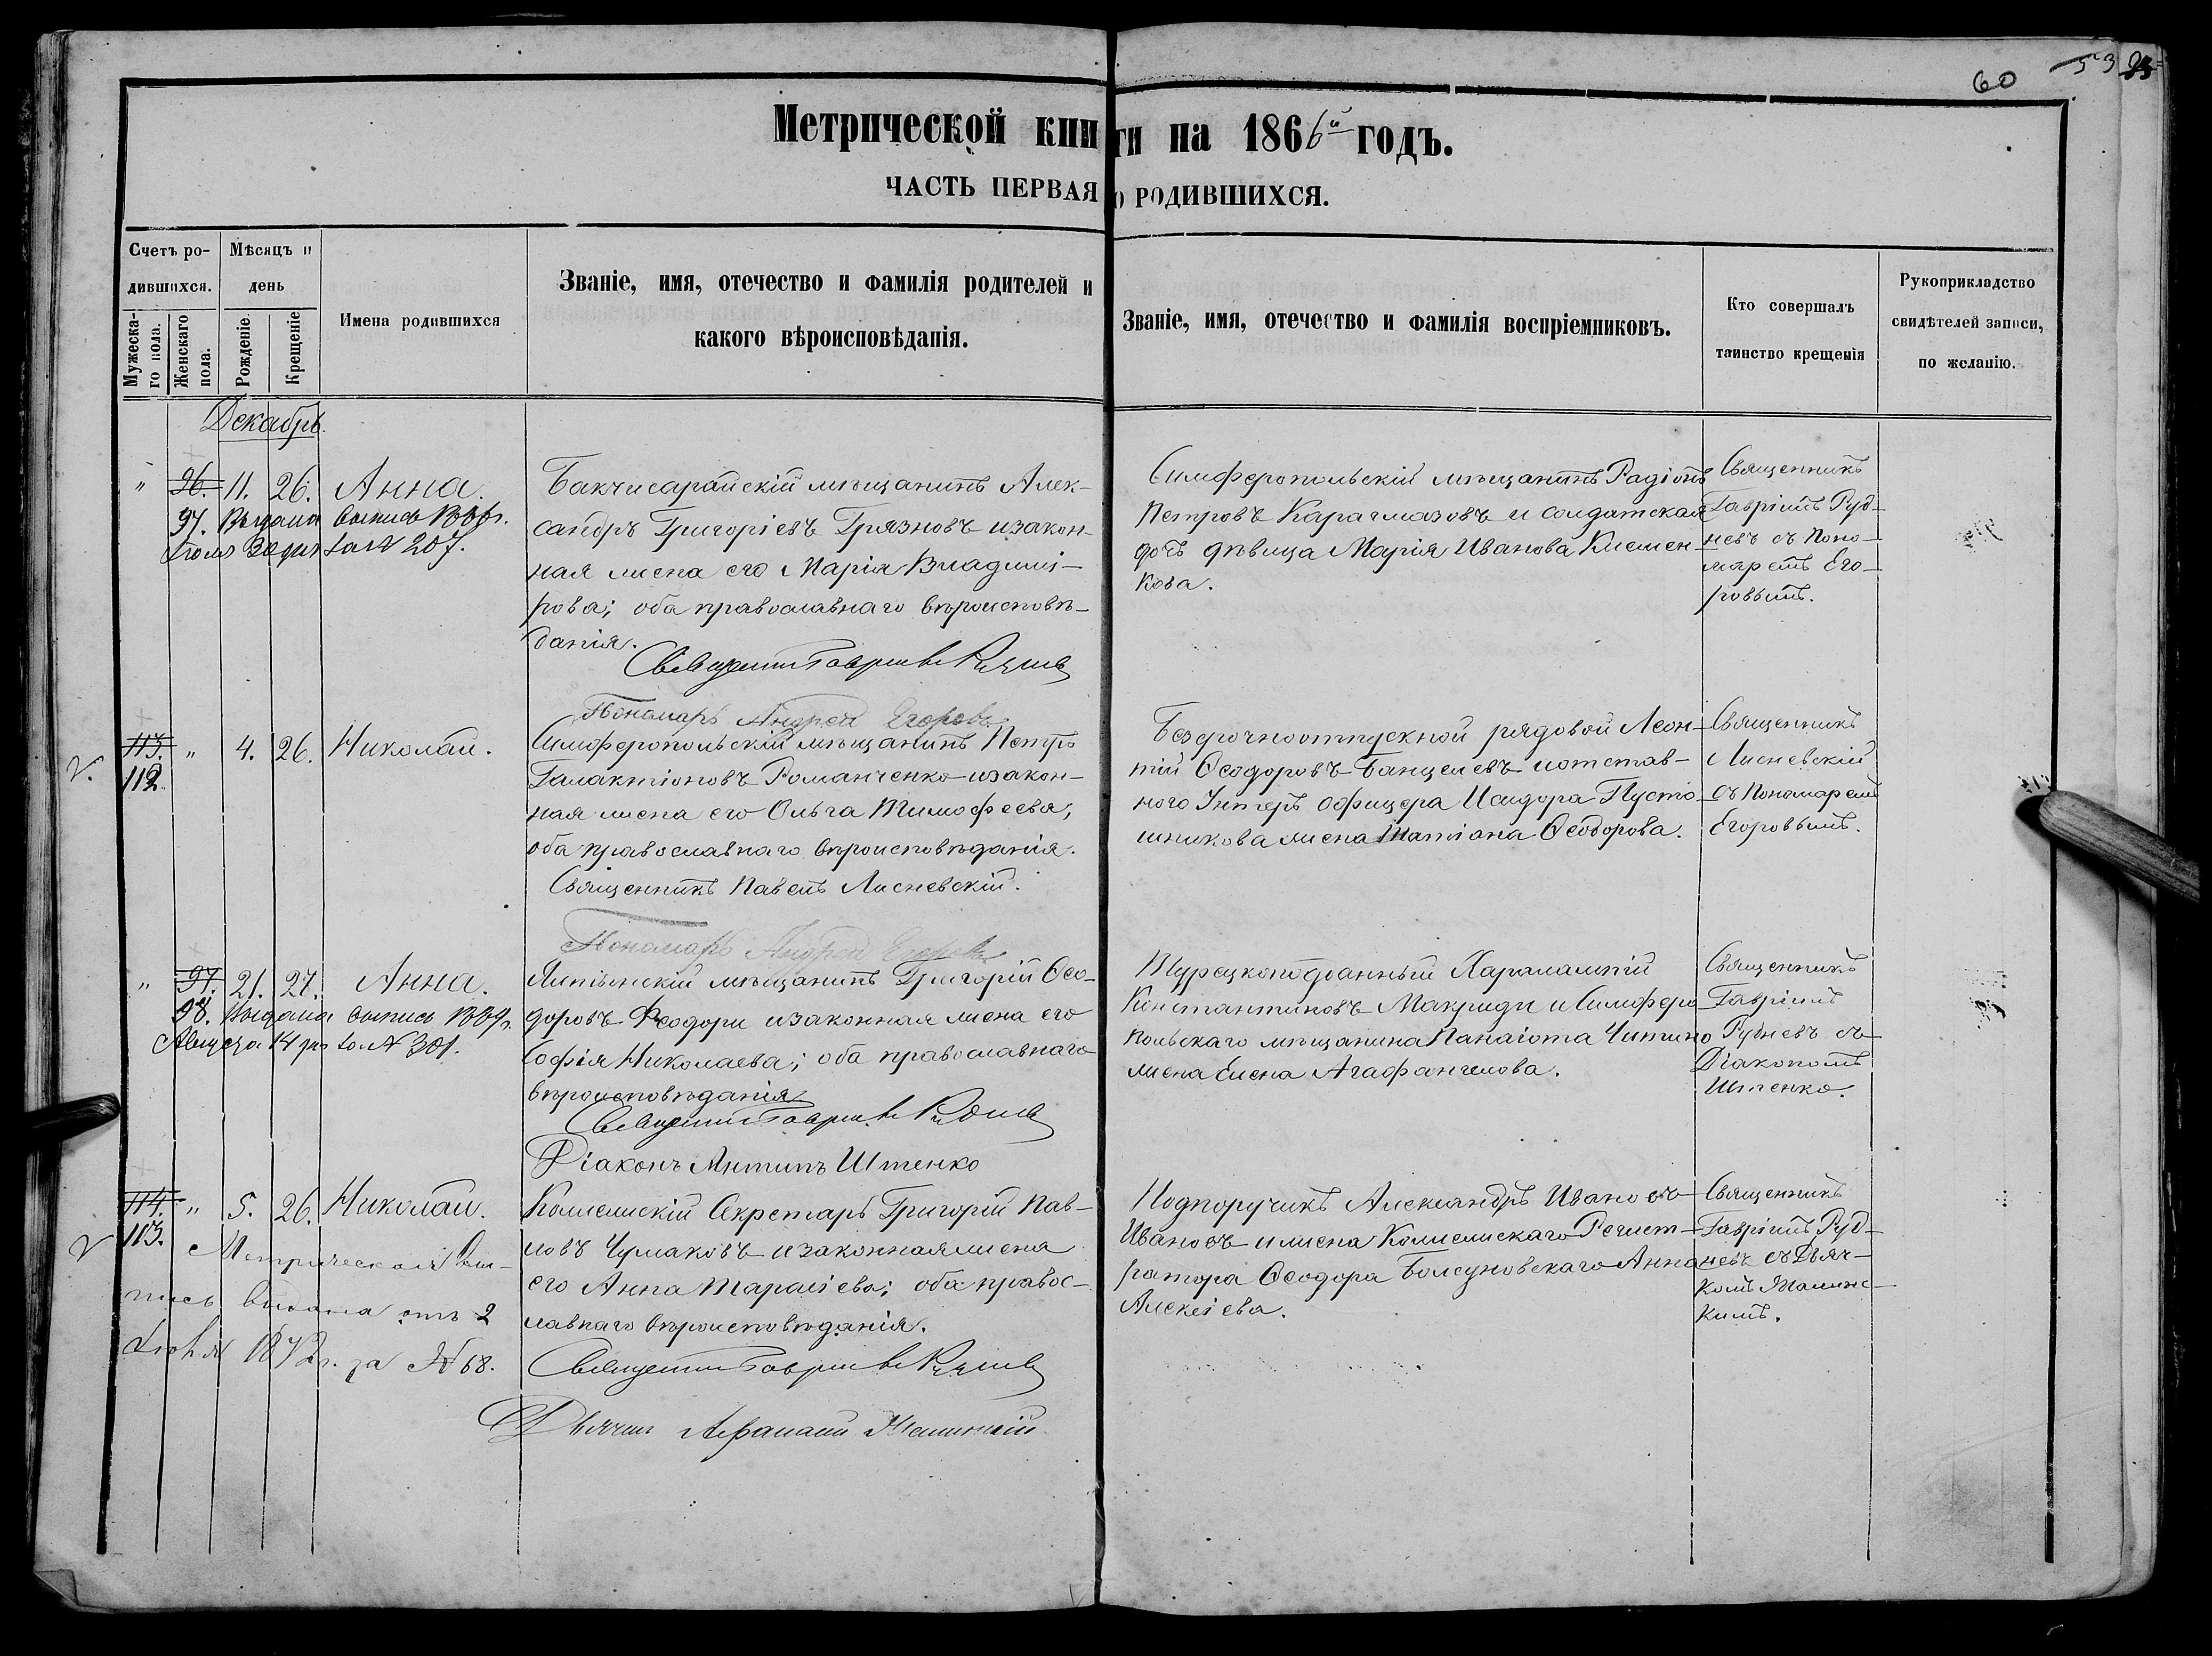 60
53
Метрической книги на 1866й годъ.
ЧАСТЬ ПЕРВАЯ О РОДИВШИХСЯ.
Счетъ ро-
дившихся.
Мужеска-
го пола.
Женскаго
пола.
Мѣсяцъ и
день
Рожденіе.
Крещеніе
Имена родившихся
Званіе, имя, отечество и фамилія родителей и
какого вѣроисповѣданія.
Званіе, имя, отечество и фамилія воспріемниковъ.
Кто совершалъ
таинство крещенія
Рукоприкладство
свидѣтелей записи,
по желанію.
Декабрь.
" 96. 11. 26. Анна.
97. Выдана выпись
Іюля 30 дня за № 207.
Бакчисарайскій мѣщанинъ Алек-
сандръ Григоріевъ Грязновъ и закон-
ная жена его Марія Владимі-
рова; оба православнаго вѣроисповѣ-
данія.
Священникъ Гавріилъ Рудневъ
Пономарь Андрей Егоровъ
Симферопольскій мѣщанинъ Радіонъ
Петровъ Карагмазовъ и солдатская
дочь дѣвица Марія Иванова Клемен-
кова.
Священникъ
Гавріилъ Руд-
невъ съ Поно-
маремъ Его-
ровымъ.
113. " 4. 26. Николай.
112.
Симферопольскій мѣщанинъ Петръ
Галактіоновъ Романченко и закон-
ная жена его Ольга Тимофеева;
оба православнаго вѣроисповѣданія.
Священникъ Павелъ Лисневскій.
Пономарь Андрей Егоровъ
Безсрочноотпускной рядовой Леон-
тій Ѳеодоровъ Банцелевъ и отстав-
ного Унтеръ офицера Исидора Пусто-
шникова жена Татіана Ѳеодорова.
Священникъ
Лисневскій
съ Пономаремъ
Егоровымъ.
" 97. 21. 27. Анна.
98. Выдана выпись
Августа 14 дня за № 301.
мѣщанинъ Григорій Ѳео-
доровъ Ѳеодори и законная жена его
Софія Николаева; оба православнаго
вѣроисповѣданія.
Священникъ Гавріилъ Рудневъ
Діаконъ Антипъ Штенко
Турецкоподданный Харалампій
Константиновъ Макриди и Симферо-
польскаго мѣщанина Панаіота Чипино
жена Елена Агафангелова.
Священникъ
Гавріилъ
Рудневъ съ
Діакономъ
Штенко.
114. " 5. 26. Николай.
113.
Метрическая вы-
пись выдана отъ 2
1872 г. за № 68.
Коллежскій Секретарь Григорій Пав-
ловъ Чумаковъ и законная жена
его Анна Тарасіева; оба правос-
лавнаго вѣроисповѣданія.
Священникъ Гавріилъ Рудневъ
Дьячекъ Афанасій
Подпоручикъ Александръ Ивановъ
Ивановъ и жена Коллежскаго Регист-
ратора Ѳеодора Болсуновскаго Анна
Алексіева.
Священникъ
Гавріилъ Руд-
невъ съ Дьяч-
комъ
кимъ.